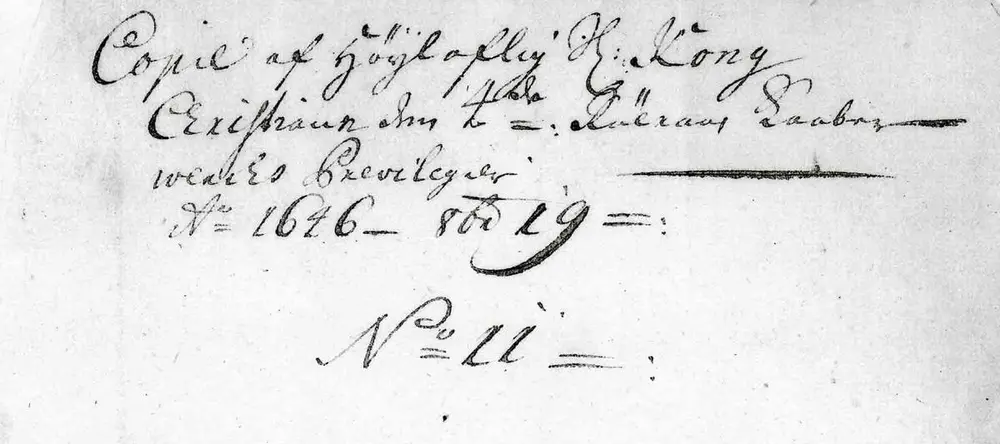 Copie af Höyl ofliy H: Kong
Christian den 4de =: Röeraas Kaaber
wercks Previlegier
Ao 1646 – 8bd 19 =:
No 11 =: